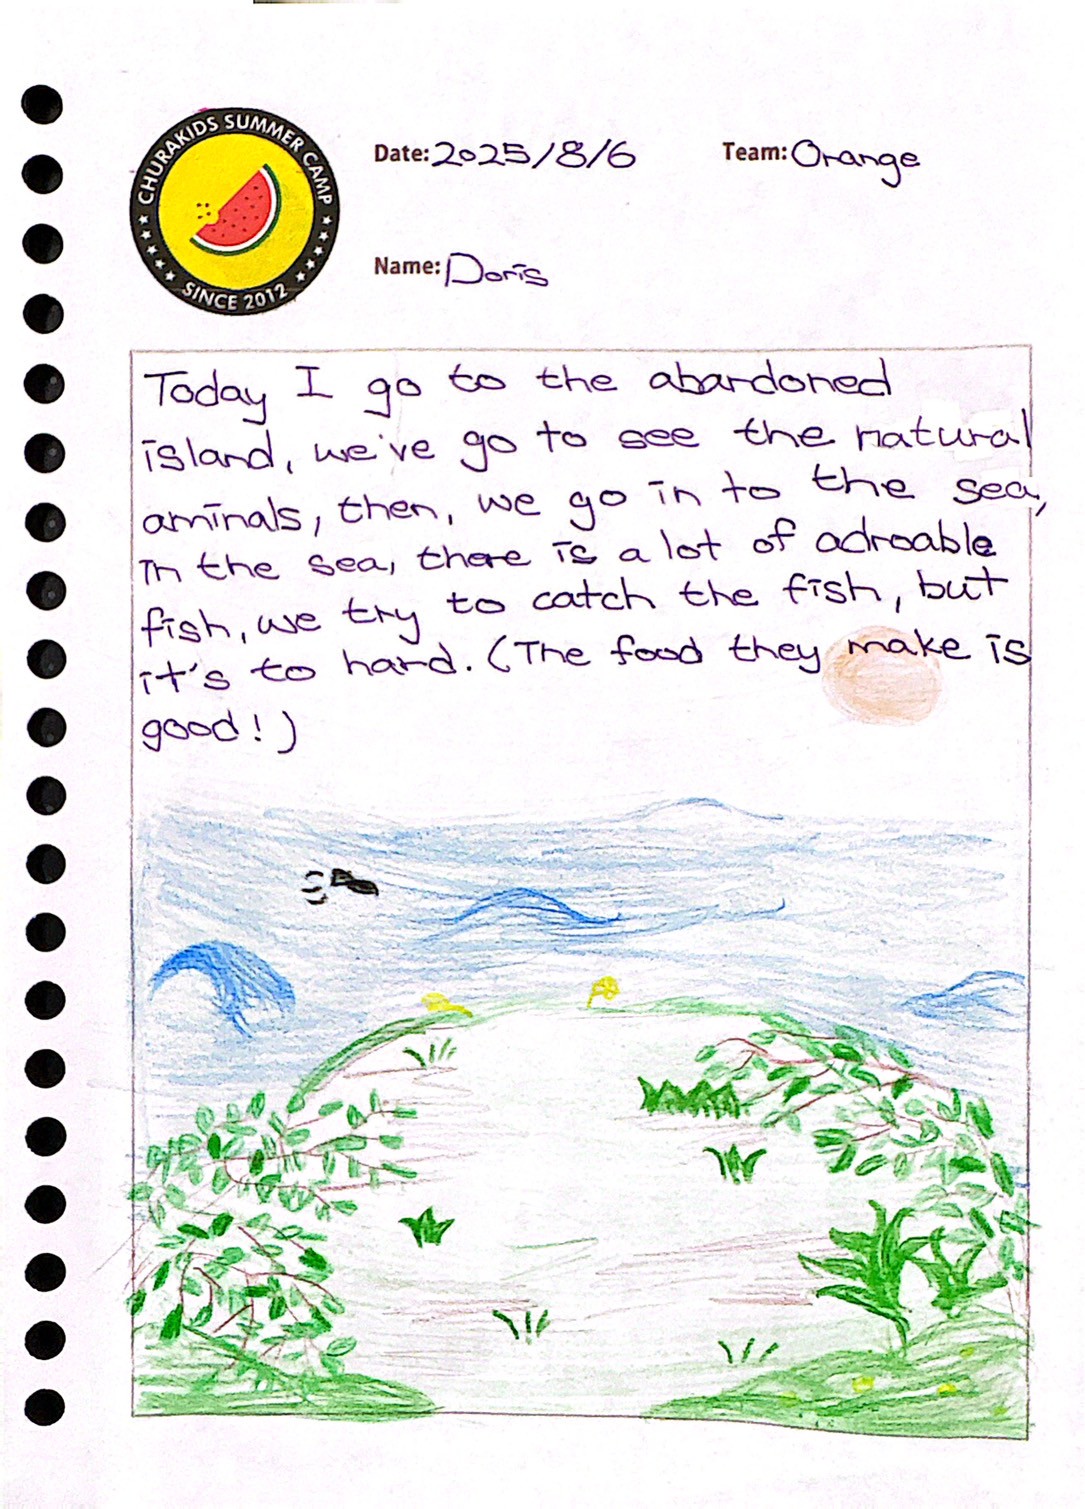 CHURAKIDS SUMMER CAMP
SINCE 2012
Date: 2025/8/6
Team: Orange
Name: Doris
Today I go to the abardoned
island, we've go to see the natural
aminals, then, we go in to the sea,
In the sea, there is a lot of adroable
fish, we try to catch the fish, but
it's to hard. (The food they make is
good!)